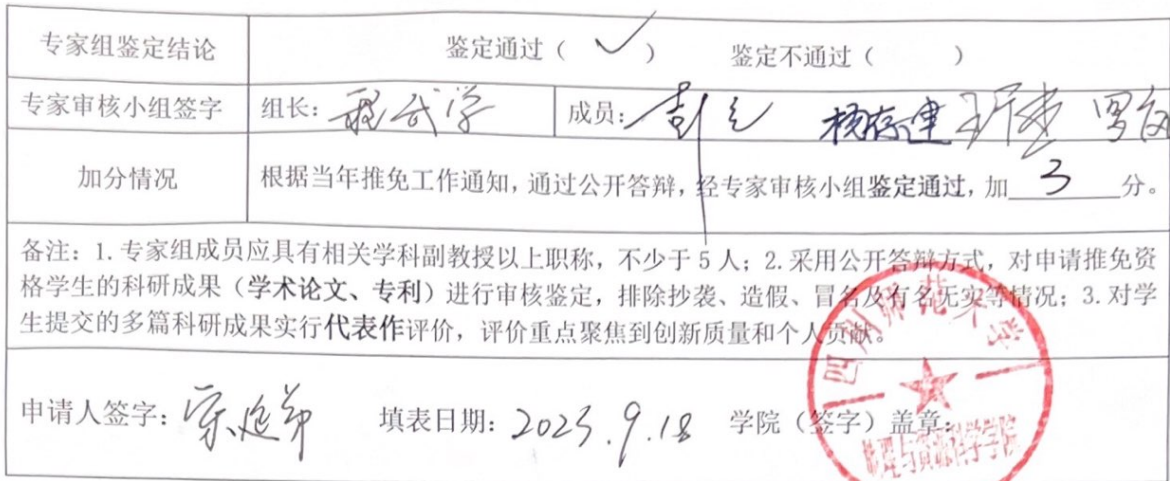 专家组鉴定结论 鉴定通过（ ✓ ） 鉴定不通过（ ）
专家审核小组签字 组长：程武学 成员： 杨存建
加分情况 根据当年推免工作通知，通过公开答辩，经专家审核小组鉴定通过，加 3 分。
备注：1.专家组成员应具有相关学科副教授以上职称，不少于5人；2.采用公开答辩方式，对申请推免资
格学生的科研成果（学术论文、专利）进行审核鉴定，排除抄袭、造假、冒名及有名无实等情况；3.对学
生提交的多篇科研成果实行代表作评价，评价重点聚焦到创新质量和个人贡献。
四川师范大学
申请人签字： 填表日期：2023.9.18 学院（签字）盖章：
地理与资源科学学院